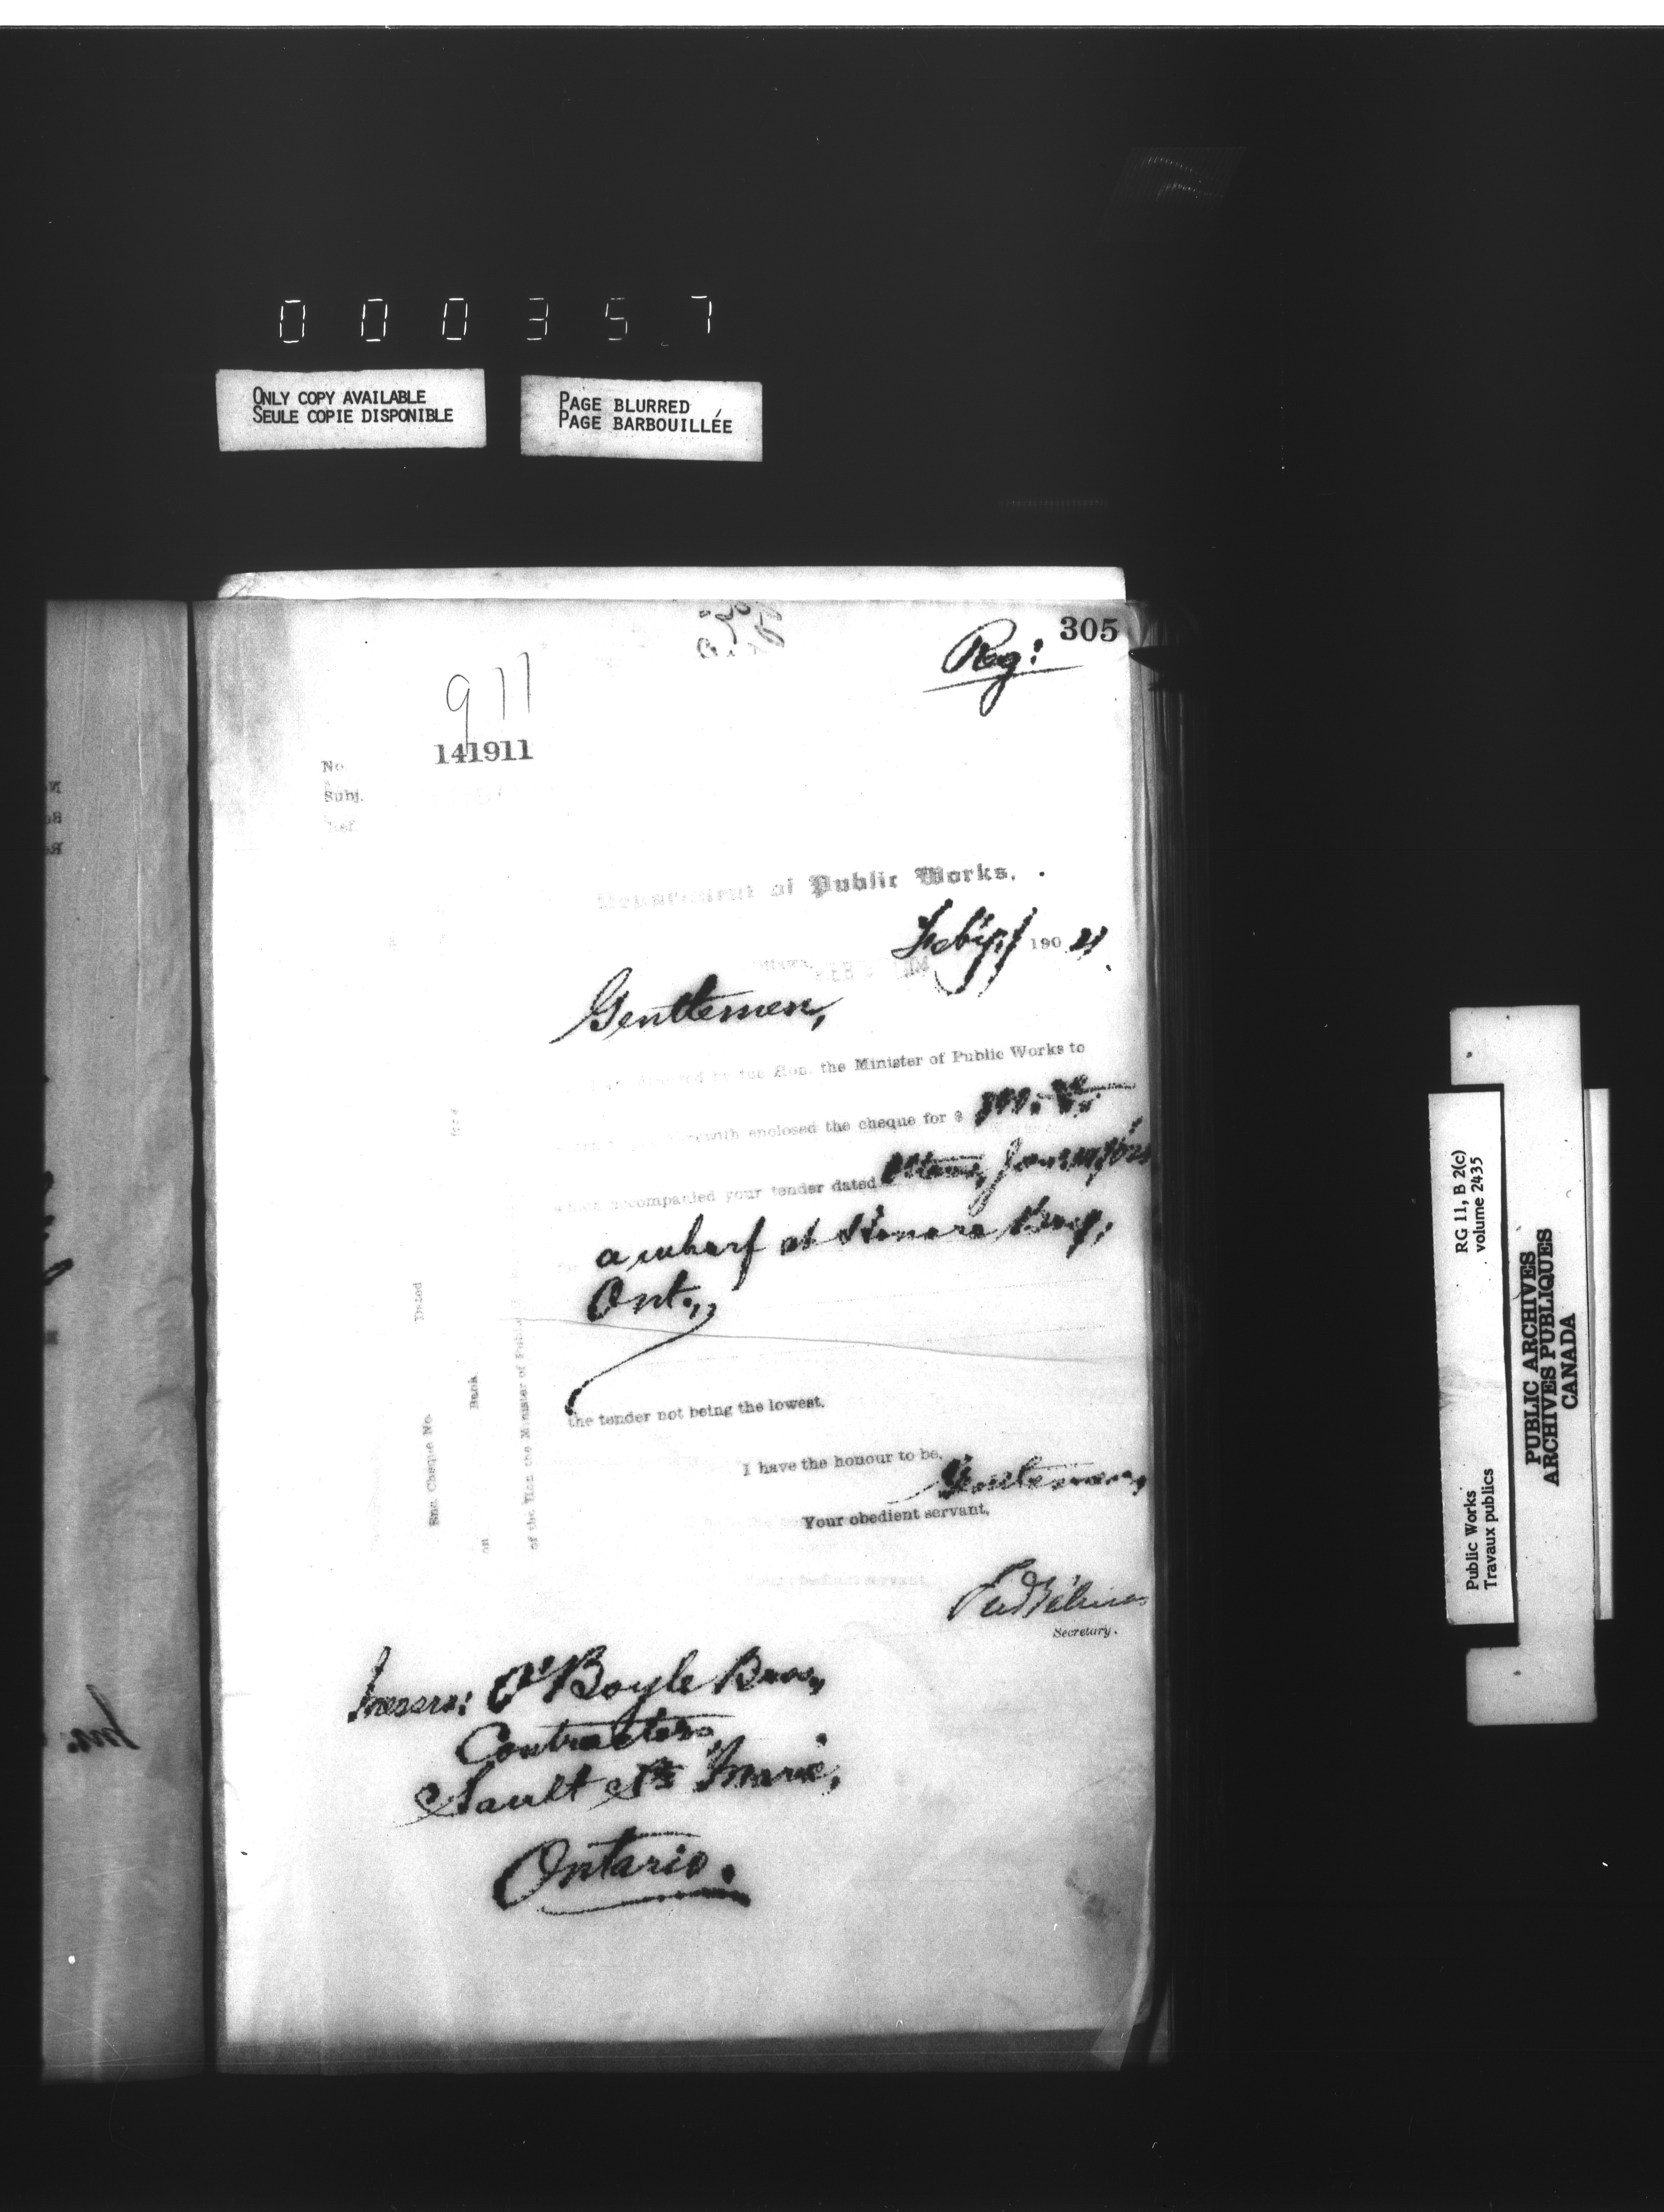 000357
ONLY COPY AVAILABLE
SEULE COPIE DISPONIBLE
PAGE BLURRED
PAGE BARBOUILLÉE
305
Reg:
911
No. 141911
Subj.
Ref.
Department of Public Works.
Ottawa, 190
Gentlemen,
directed by the Hon. the Minister of Public Works to
herewith enclosed the cheque for $
which accompanied your tender dated
a wharf at Honora Bay,
Ont.,
the tender not being the lowest.
I have the honour to be,
Gentlemen,
Your obedient servant,
Secretary.
Messrs: O'Boyle Bros.,
Contractors,
Sault Ste Marie,
Ontario.
Enc. Cheque No. Dated
on Bank
of the Hon. the Minister of Public
RG 11, B 2(c)
volume 2435
Public Works
Travaux publics
PUBLIC ARCHIVES
ARCHIVES PUBLIQUES
CANADA